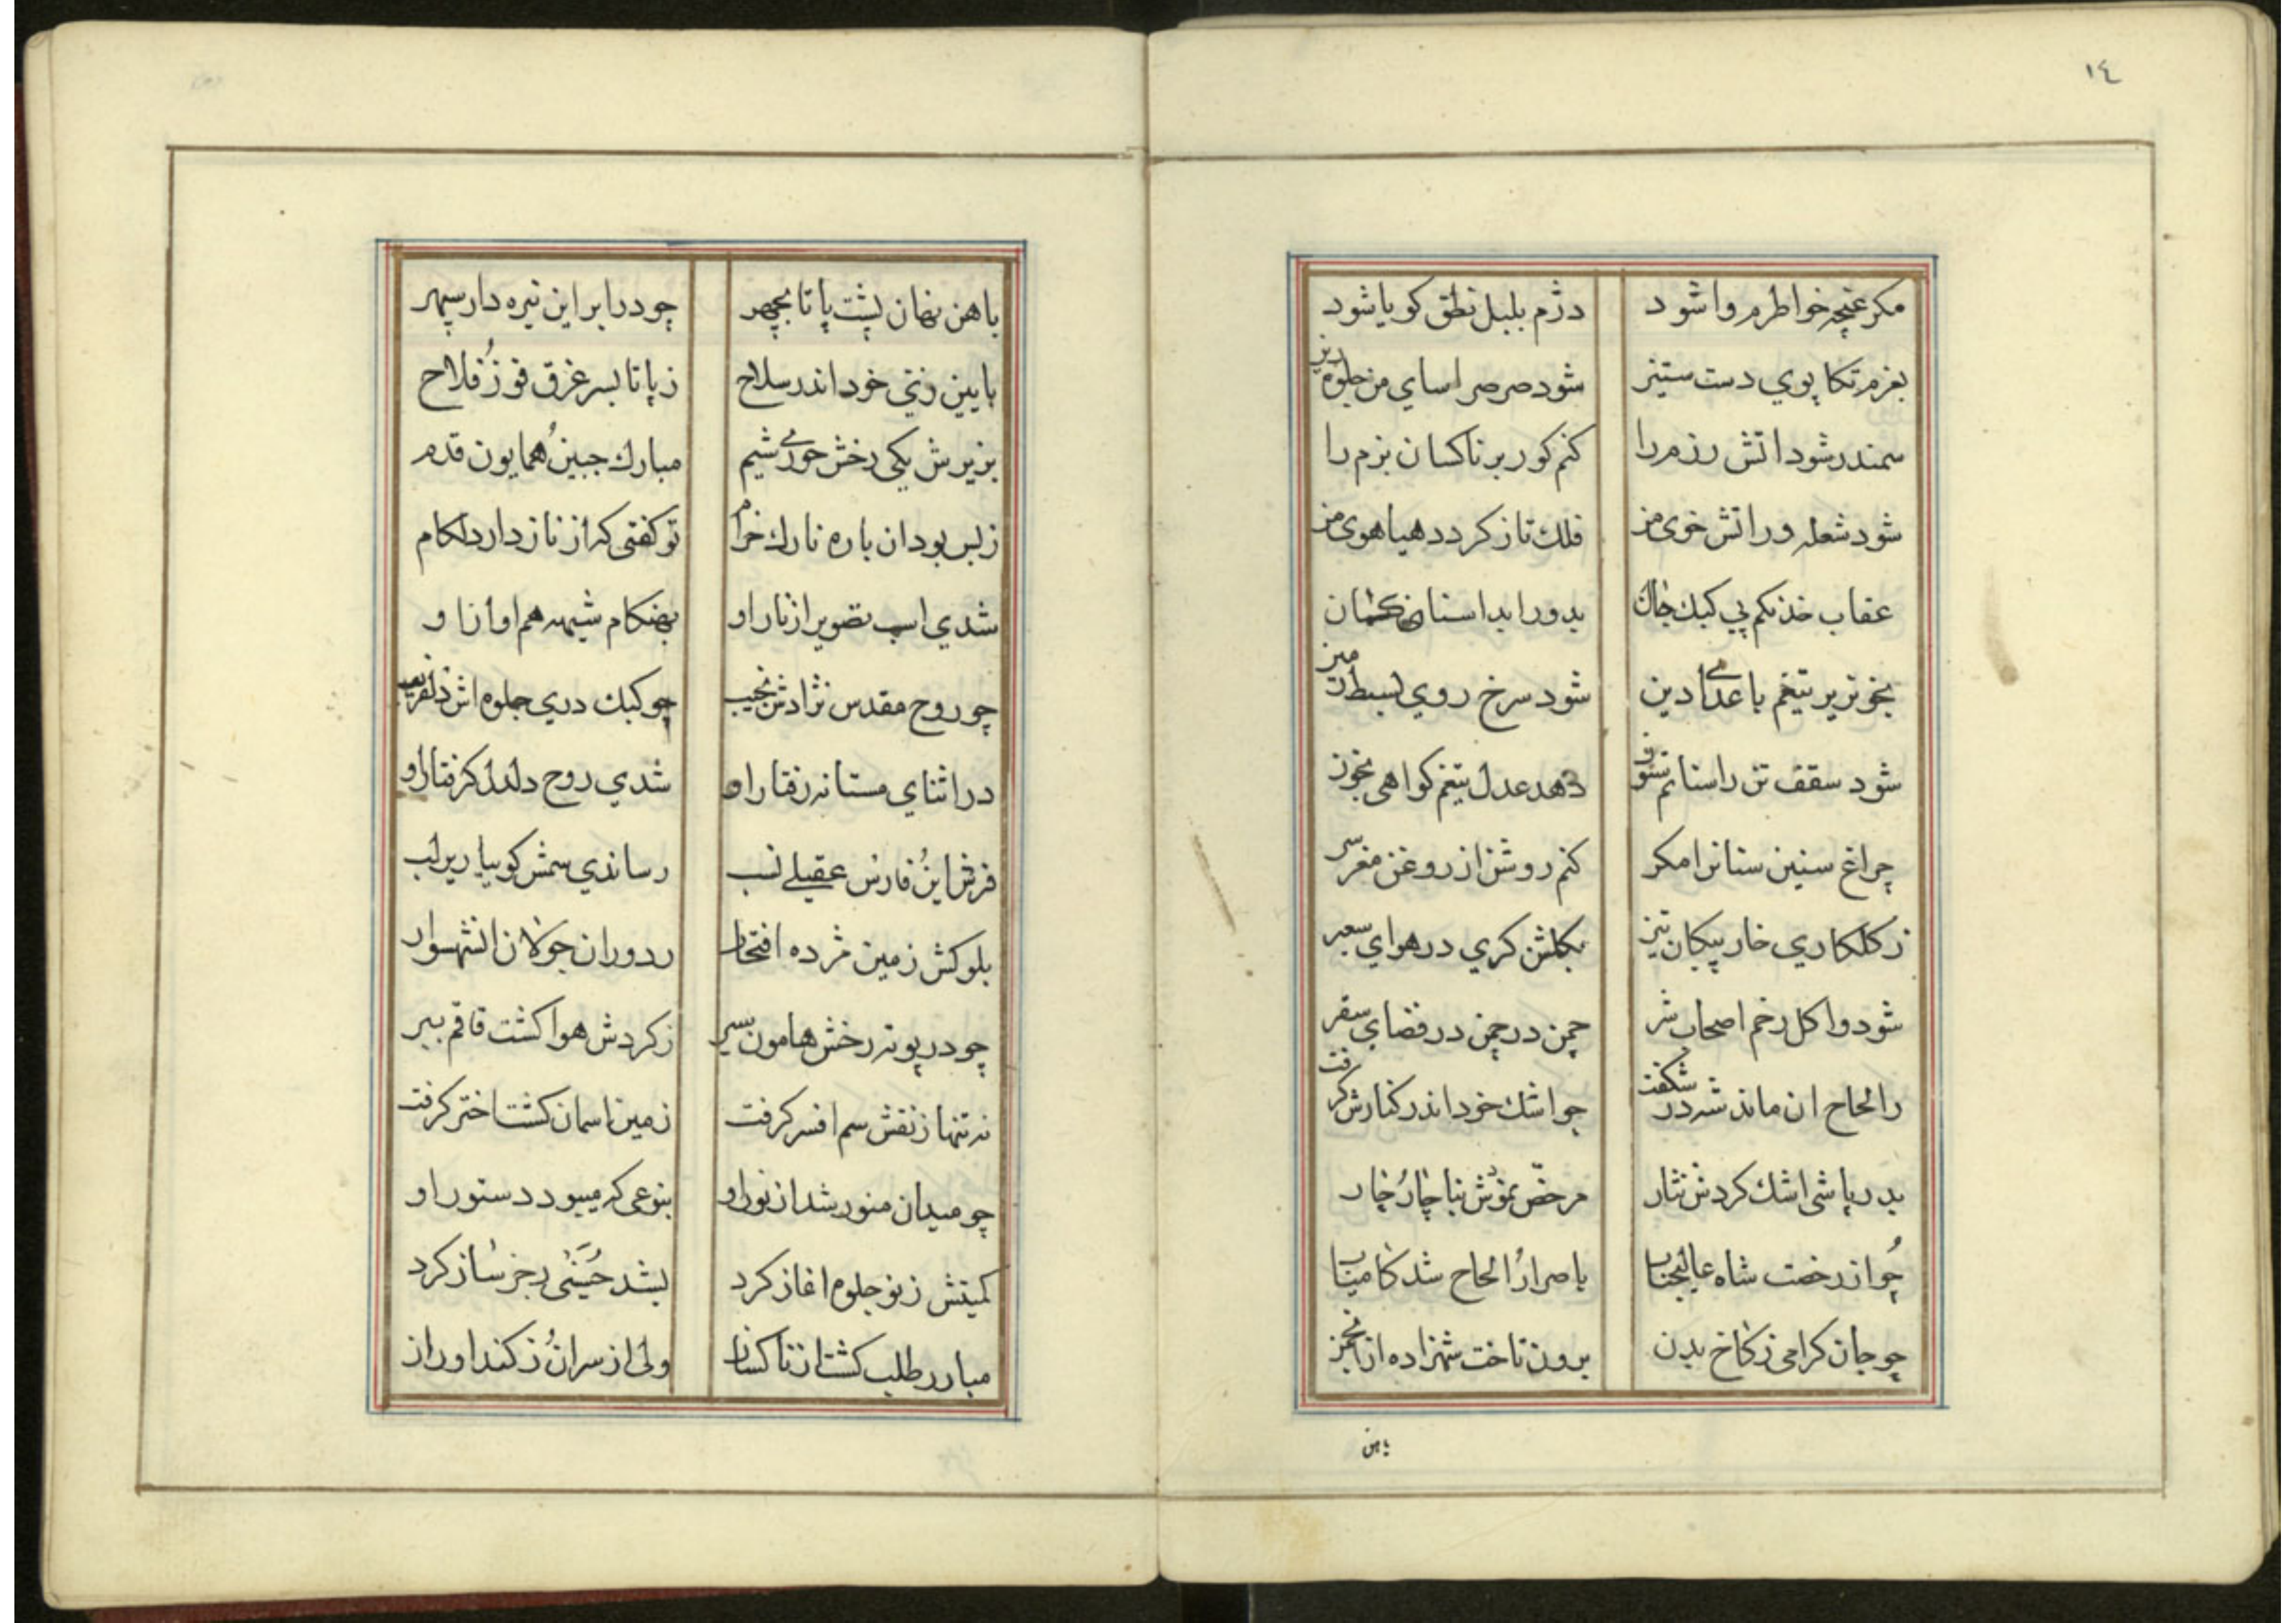 ١٤
مكر غنچه خواطرم وا شود
دژم بلبل نطق كويا شود
بعزم تكاپوي دست ستيز
شود صرصر اساي من جلوه ريز
سمندر شود اتش رزم را
كنم كور بر ناكسان بزم را
شود شعله ور اتش خوی من
فلك تاز كردد هياهوی من
عقاب خدنكم پي كبك جان
بدور ابد استان
بخونريز تيغم با عداي دين
شود سرخ روي بسيط زمين
شود سقف تن را سنانم ستون
دهد عدل تيغم كواهی بخون
چراغ سنين سنانرا مكر
كنم روشن از روغن مغز سر
ز كلكاري خار پيكان تيز
بكلشن كري در هواي سعير
شود وا كل زخم اصحاب شر
چمن در چمن در فضاي سقر
ز الحاح ان ماند شه در شكفت
چو اشك خود اندر كنارش كرفت
بدر پاشی اشك كردش نثار
مرخص نمودش بنا چار چار
چو از رخصت شاه عاليجناب
با صرار الحاح شد كامياب
چو جان كرامی ز كاخ بدن
برون تاخت شهزاده از انجمن
باهن
باهن نهان پشت پا تا بچهر
چو در ابر اين تيره دار سپهر
بايين زيني خود اندر سلاح
ز پا تا بسر غرق فوز فلاح
بزيرش يكي رخش حوري شيم
مبارك جبين همايون قدم
ز بس بود ان باره نازك خرام
تو كفتی كه از ناز دارد لكام
شدي اسب تصوير از نار او
بهنكام شيهه هم اواز او
چو روح مقدس نژادش نجيب
چو كبك دري جلوه اش دلفريب
در اثناي مستانه رفتار او
شدي روح دلدل كرفتار او
فرش اين فارس عقيلي نسب
رساندي سمش كو بيا زير لب
بلوكش زمين مژده افتخار
ز دوران جولان انشهسوار
چو در پويه رخش هامون بسير
ز كردش هوا كشت قاقم ببر
نه تنها ز نقش سم افسر كرفت
زمين اسمان كشت اختر كرفت
چو ميدان منور شد از نور او
بنوعی كه ميبود دستور او
كميتش ز نو جلوه اغاز كرد
بشد حسيني رجز ساز كرد
مبارز طلب كشت از ناكسان
ولی از سران ز كند اوران